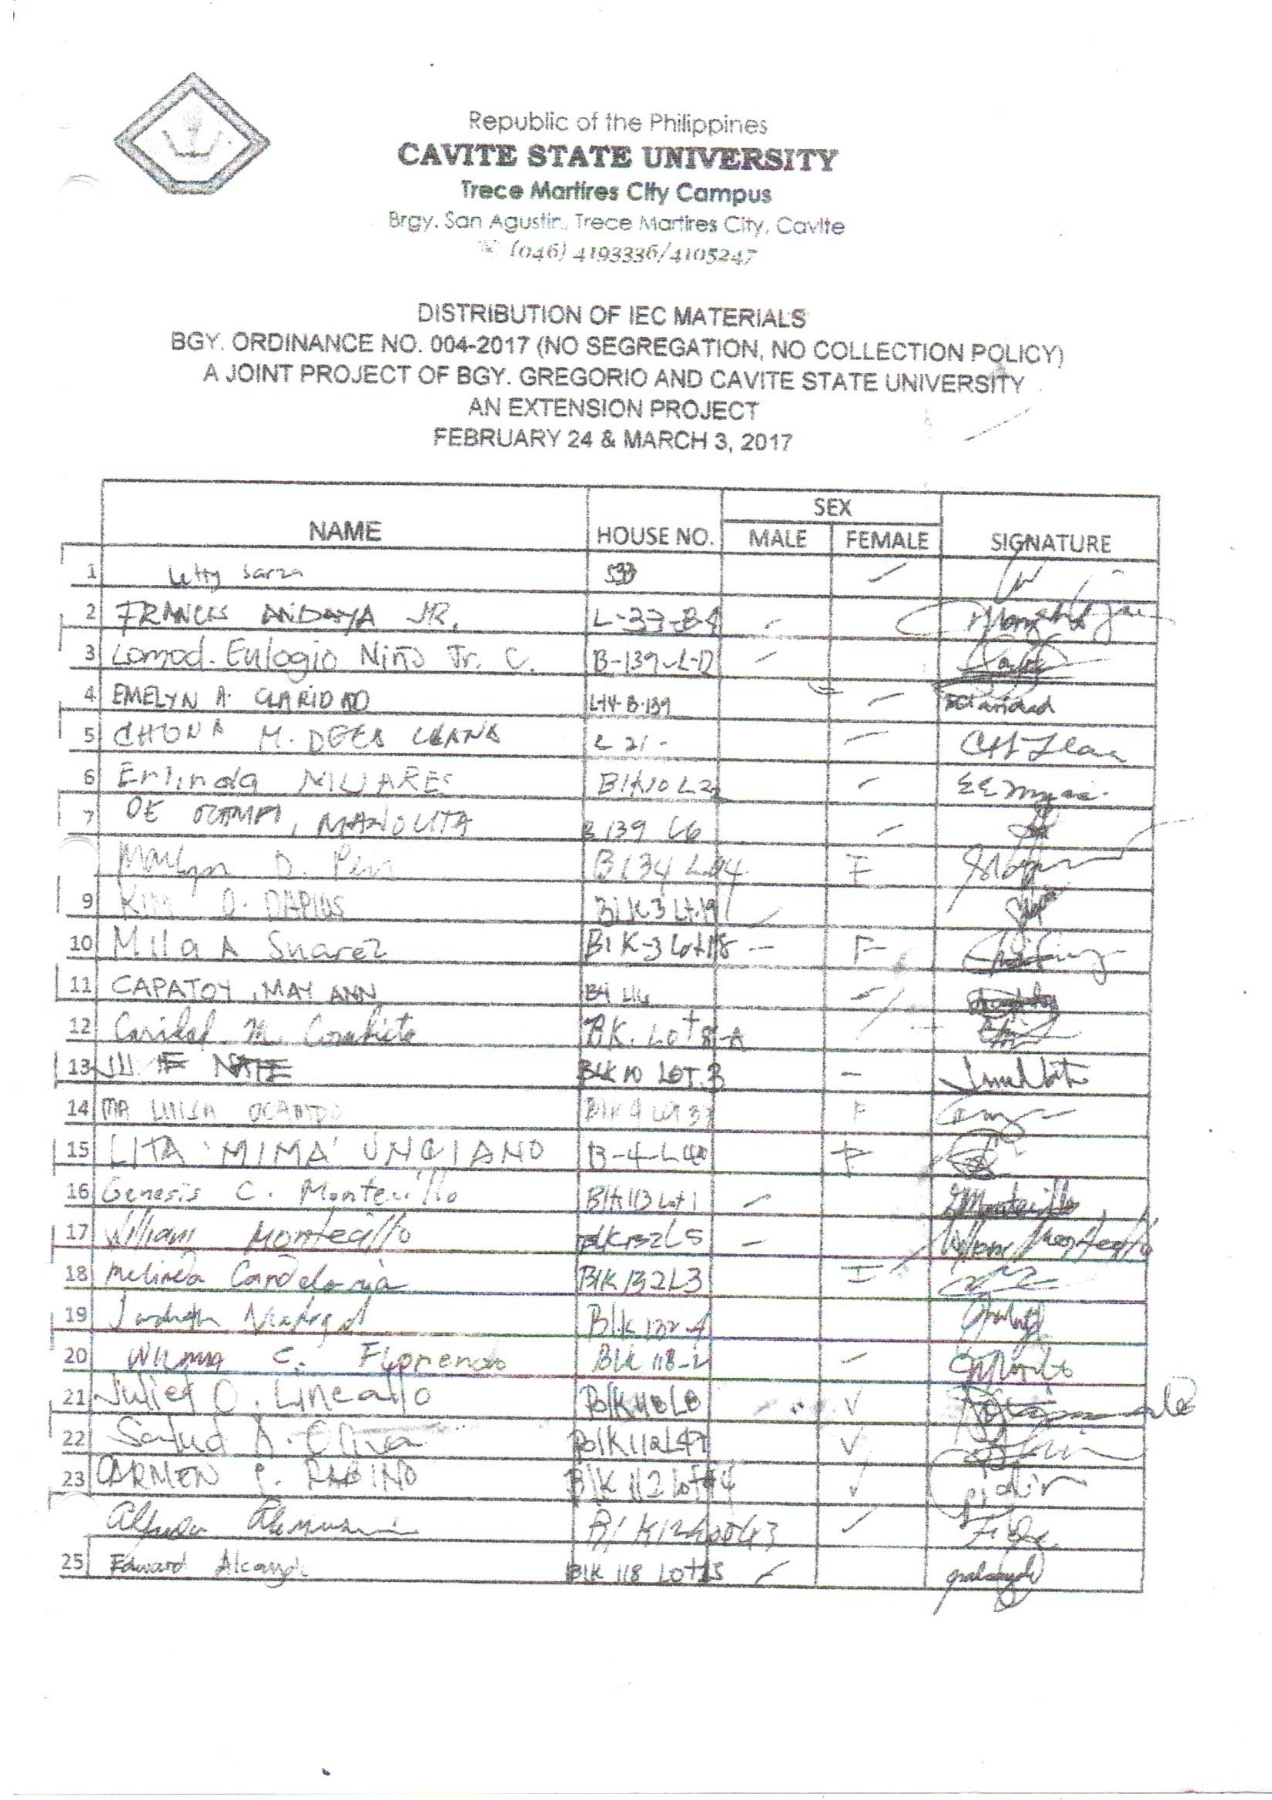 Republic of the Philippines
CAVITE STATE UNIVERSITY
Trece Martires City Campus
Brgy. San Agustin, Trece Martires City, Cavite
☏ (046) 4193336/4105247
DISTRIBUTION OF IEC MATERIALS
BGY. ORDINANCE NO. 004-2017 (NO SEGREGATION, NO COLLECTION POLICY)
A JOINT PROJECT OF BGY. GREGORIO AND CAVITE STATE UNIVERSITY
AN EXTENSION PROJECT
FEBRUARY 24 & MARCH 3, 2017
NAME HOUSE NO. SEX SIGNATURE
MALE FEMALE
1 Letty Sarza 533
2 FRANCIS ANDAYA JR. L-33-B4
3 Lomod. Eulogio Niño Jr. C. B-139-L-17
4 EMELYN A. CLARIDAD L-14-B-139
5 CHONA M. L 21-
6 Erlinda MIJARES Blk10 L2
7 DE OCAMPO, MANOLITA B 139 L6
Marlyn D. B134 L F
9 KIM O. DAPIUS BlK3 Lt.19
10 Mila A Suarez BlK-3 Lot18 F
11 CAPATOY, MAY ANN B4 L16
12 Caridad M. BK. Lot 8-A
13 NATE BLK 10 LOT.3
14 MA LUISA OCAMPO Blk 9 F
15 LITA 'MIMA' UNCIANO B-4-L40 F
16 Genesis C. Montecillo Blk113 Lot1
17 William Montecillo blk132L5
18 Melinda Candelaria BlK 132L3
19 Blk 132-4
20 WILMA C. Florendo Blk 118-2
21 Juliet O. Lincallo
22 Salud A. Oliva BlK112L47
23 CARMEN P. RABINO BlK 112 Lot 44
25 Edward BlK 118 Lot25